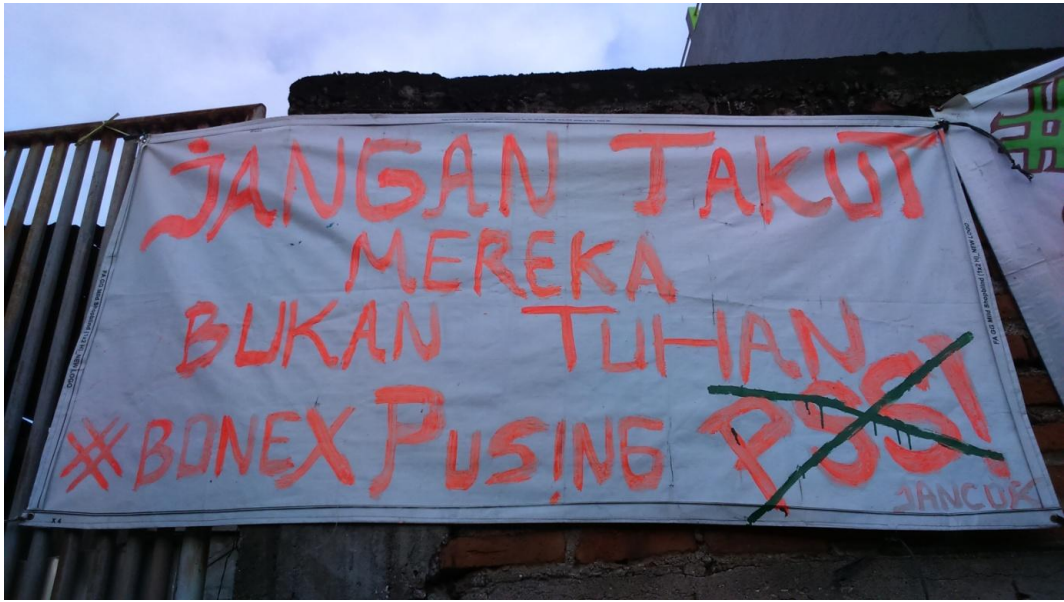 JANGAN TAKUT
MEREKA
BUKAN TUHAN
#BONEX PUSING PSSI
JANCUK